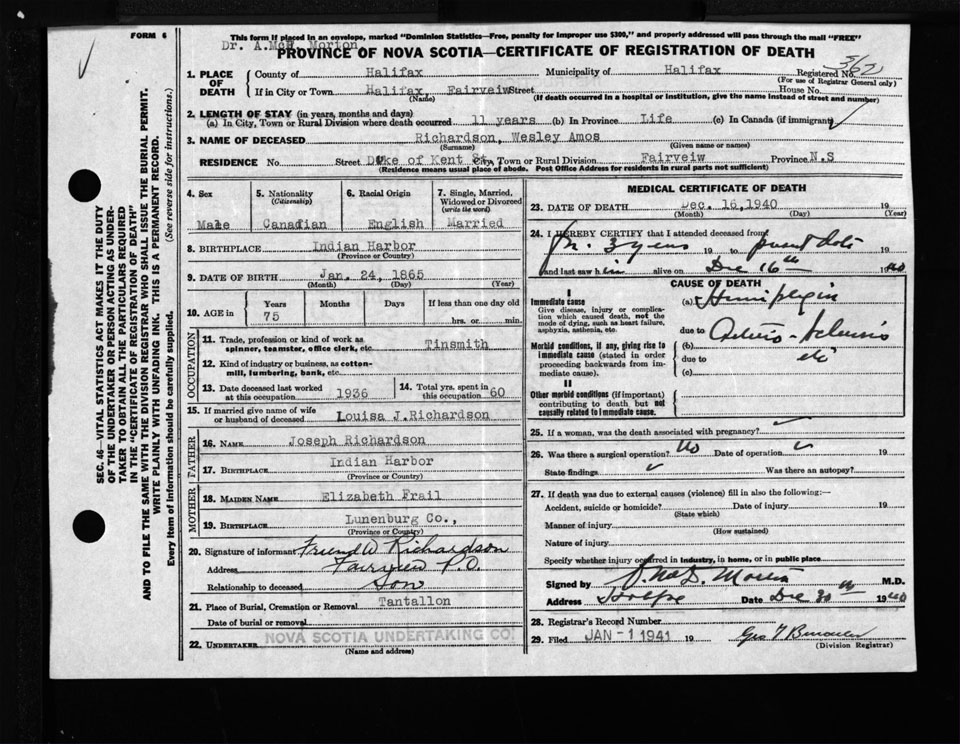 FORM 6
This form if placed in an envelope, marked "Dominion Statistics—Free, penalty for improper use $300," and properly addressed will pass through the mail "FREE"
Dr. A.McD. Morton
PROVINCE OF NOVA SCOTIA—CERTIFICATE OF REGISTRATION OF DEATH
362
1. PLACE OF DEATH
County of Halifax Municipality of Halifax Registered No.
(For use of Registrar General only)
If in City or Town Halifax, Fairveiw Street House No.
(Name) (If death occurred in a hospital or institution, give the name instead of street and number)
2. LENGTH OF STAY (in years, months and days)
(a) In City, Town or Rural Division where death occurred 11 years (b) In Province Life (c) In Canada (if immigrant)
3. NAME OF DECEASED Richardson, Wesley Amos
(Surname) (Given name or names)
RESIDENCE No. Street Duke of Kent St. City, Town or Rural Division Fairveiw Province N.S
(Residence means usual place of abode. Post Office Address for residents in rural parts not sufficient)
4. Sex
Male
5. Nationality
(Citizenship)
Canadian
6. Racial Origin
English
7. Single, Married, Widowed or Divorced
(write the word)
Married
8. BIRTHPLACE Indian Harbor
(Province or Country)
9. DATE OF BIRTH Jan. 24, 1865
(Month) (Day) (Year)
10. AGE in Years Months Days If less than one day old
75 hrs. or min.
OCCUPATION
11. Trade, profession or kind of work as spinner, teamster, office clerk, etc. Tinsmith
12. Kind of industry or business, as cotton-mill, lumbering, bank, etc.
13. Date deceased last worked at this occupation 1936
14. Total yrs. spent in this occupation 60
15. If married give name of wife or husband of deceased Louisa J.Richardson
FATHER
16. NAME Joseph Richardson
17. BIRTHPLACE Indian Harbor
(Province or Country)
MOTHER
18. MAIDEN NAME Elizabeth Frail
19. BIRTHPLACE Lunenburg Co.,
(Province or Country)
20. Signature of informant Richardson
Address Fairview P.O.
Relationship to deceased Son
21. Place of Burial, Cremation or Removal Tantallon
Date of burial or removal
22. UNDERTAKER NOVA SCOTIA UNDERTAKING CO.
(Name and address)
MEDICAL CERTIFICATE OF DEATH
23. DATE OF DEATH Dec. 16, 1940 19
(Month) (Day) (Year)
24. I HEREBY CERTIFY that I attended deceased from
3 years 19 to present date
and last saw him alive on Dec 16th 1940
CAUSE OF DEATH
I
Immediate cause
Give disease, injury or complication which caused death, not the mode of dying, such as heart failure, asphyxia, asthenia, etc.
(a) Hemiplegia
due to
Morbid conditions, if any, giving rise to immediate cause (stated in order proceeding backwards from immediate cause).
(b) Arterio-sclerosis
due to etc
(c)
II
Other morbid conditions (if important) contributing to death but not causally related to immediate cause.
25. If a woman, was the death associated with pregnancy?
26. Was there a surgical operation? No Date of operation 19
State findings Was there an autopsy?
27. If death was due to external causes (violence) fill in also the following:—
Accident, suicide or homicide? Date of injury 19
(State which)
Manner of injury
(How sustained)
Nature of injury
Specify whether injury occurred in industry, in home, or in public place
Signed by M.D.
Address Halifax Date Dec 30th 1940
28. Registrar's Record Number
29. Filed JAN -1 1941 19 Geo
(Division Registrar)
SEC. 46—VITAL STATISTICS ACT MAKES IT THE DUTY
OF THE UNDERTAKER OR PERSON ACTING AS UNDER-
TAKER TO OBTAIN ALL THE PARTICULARS REQUIRED
IN THE "CERTIFICATE OF REGISTRATION OF DEATH"
AND TO FILE THE SAME WITH THE DIVISION REGISTRAR WHO SHALL ISSUE THE BURIAL PERMIT.
WRITE PLAINLY WITH UNFADING INK. THIS IS A PERMANENT RECORD.
Every item of Information should be carefully supplied. (See reverse side for instructions.)